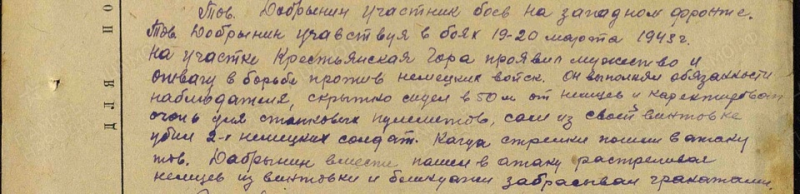 Тов. Добрынин участник боев на западном фронте.
Тов. Добрынин учавствуя в боях 19-20 марта 1943 г.
на участке Крестьянская Гора проявил мужество и
отвагу в борьбе против немецких войск. Он выполнял обязанности
наблюдателя, скрытно сидел в 50 м от немцев и корректировал
огонь для станковых пулеметов, сам из своей винтовке
убил 2-х немецких солдат. Когда стрелки пошли в атаку
тов. Добрынин вместе пошел в атаку растреливал
немцев из винтовки и забрасывал гранатами.
ДЛЯ ПО